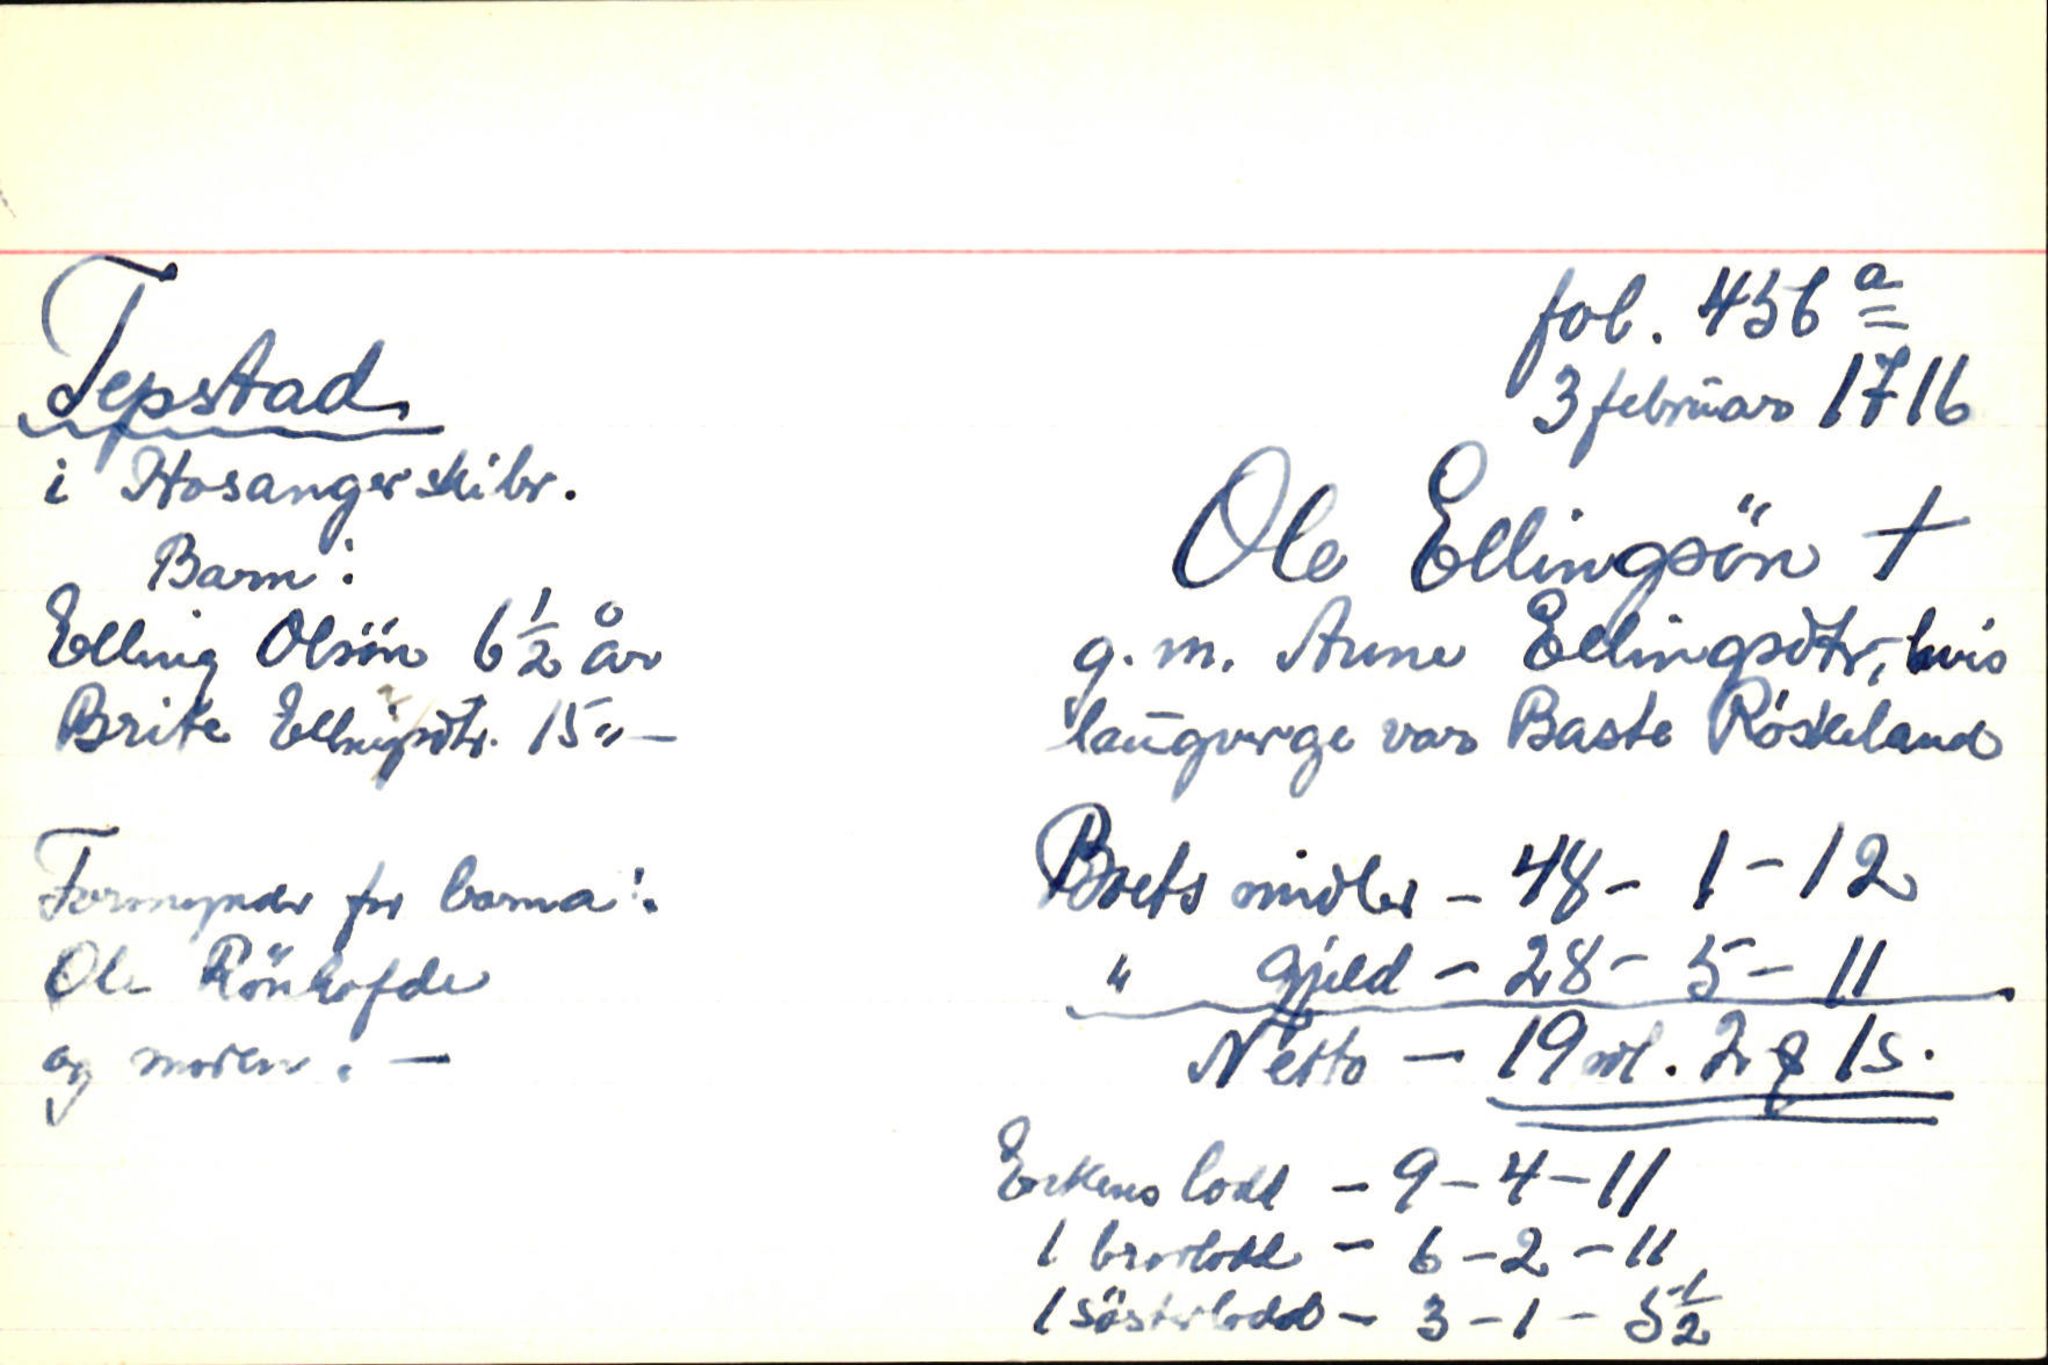 Tepstad
i Hosanger skibr.
Barn:
Elling Olsön 6 1/2 år
Brite Ellingsdtr. 15 " —
Formynder for barna:
Ole Rönhofde
og moren. —
fol. 456 a
3 februar 1716
Ole Ellingsön †
g. m. Anne Ellingsdtr, hvis
laugverge var Baste Röskeland
Boets midler – 48 – 1 – 12
" gjeld – 28 – 5 – 11
Netto – 19 rdl. 2 ꝑ 1 s.
Enkens lodd – 9 – 4 – 11
1 brorlodd – 6 – 2 – 11
1 sösterlodd – 3 – 1 – 5 1/2